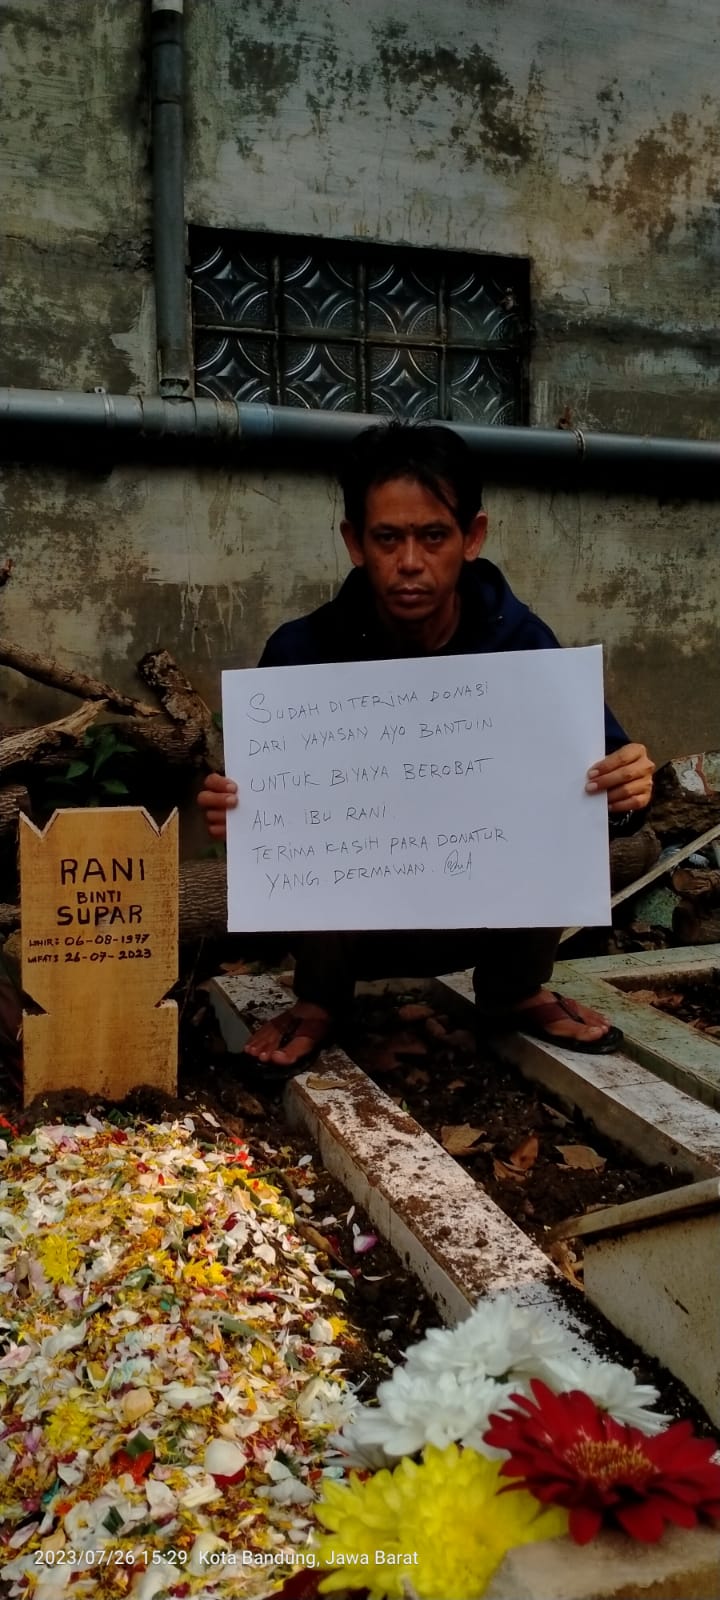 SUDAH DI TERIMA DONASI
DARI YAYASAN AYO BANTUIN
UNTUK BIYAYA BEROBAT
ALM. IBU RANI.
TERIMA KASIH PARA DONATUR
YANG DERMAWAN.
RANI
BINTI
SUPAR
LAHIR: 06-08-1977
WAFAT: 26-07-2023
2023/07/26 15:29 Kota Bandung, Jawa Barat